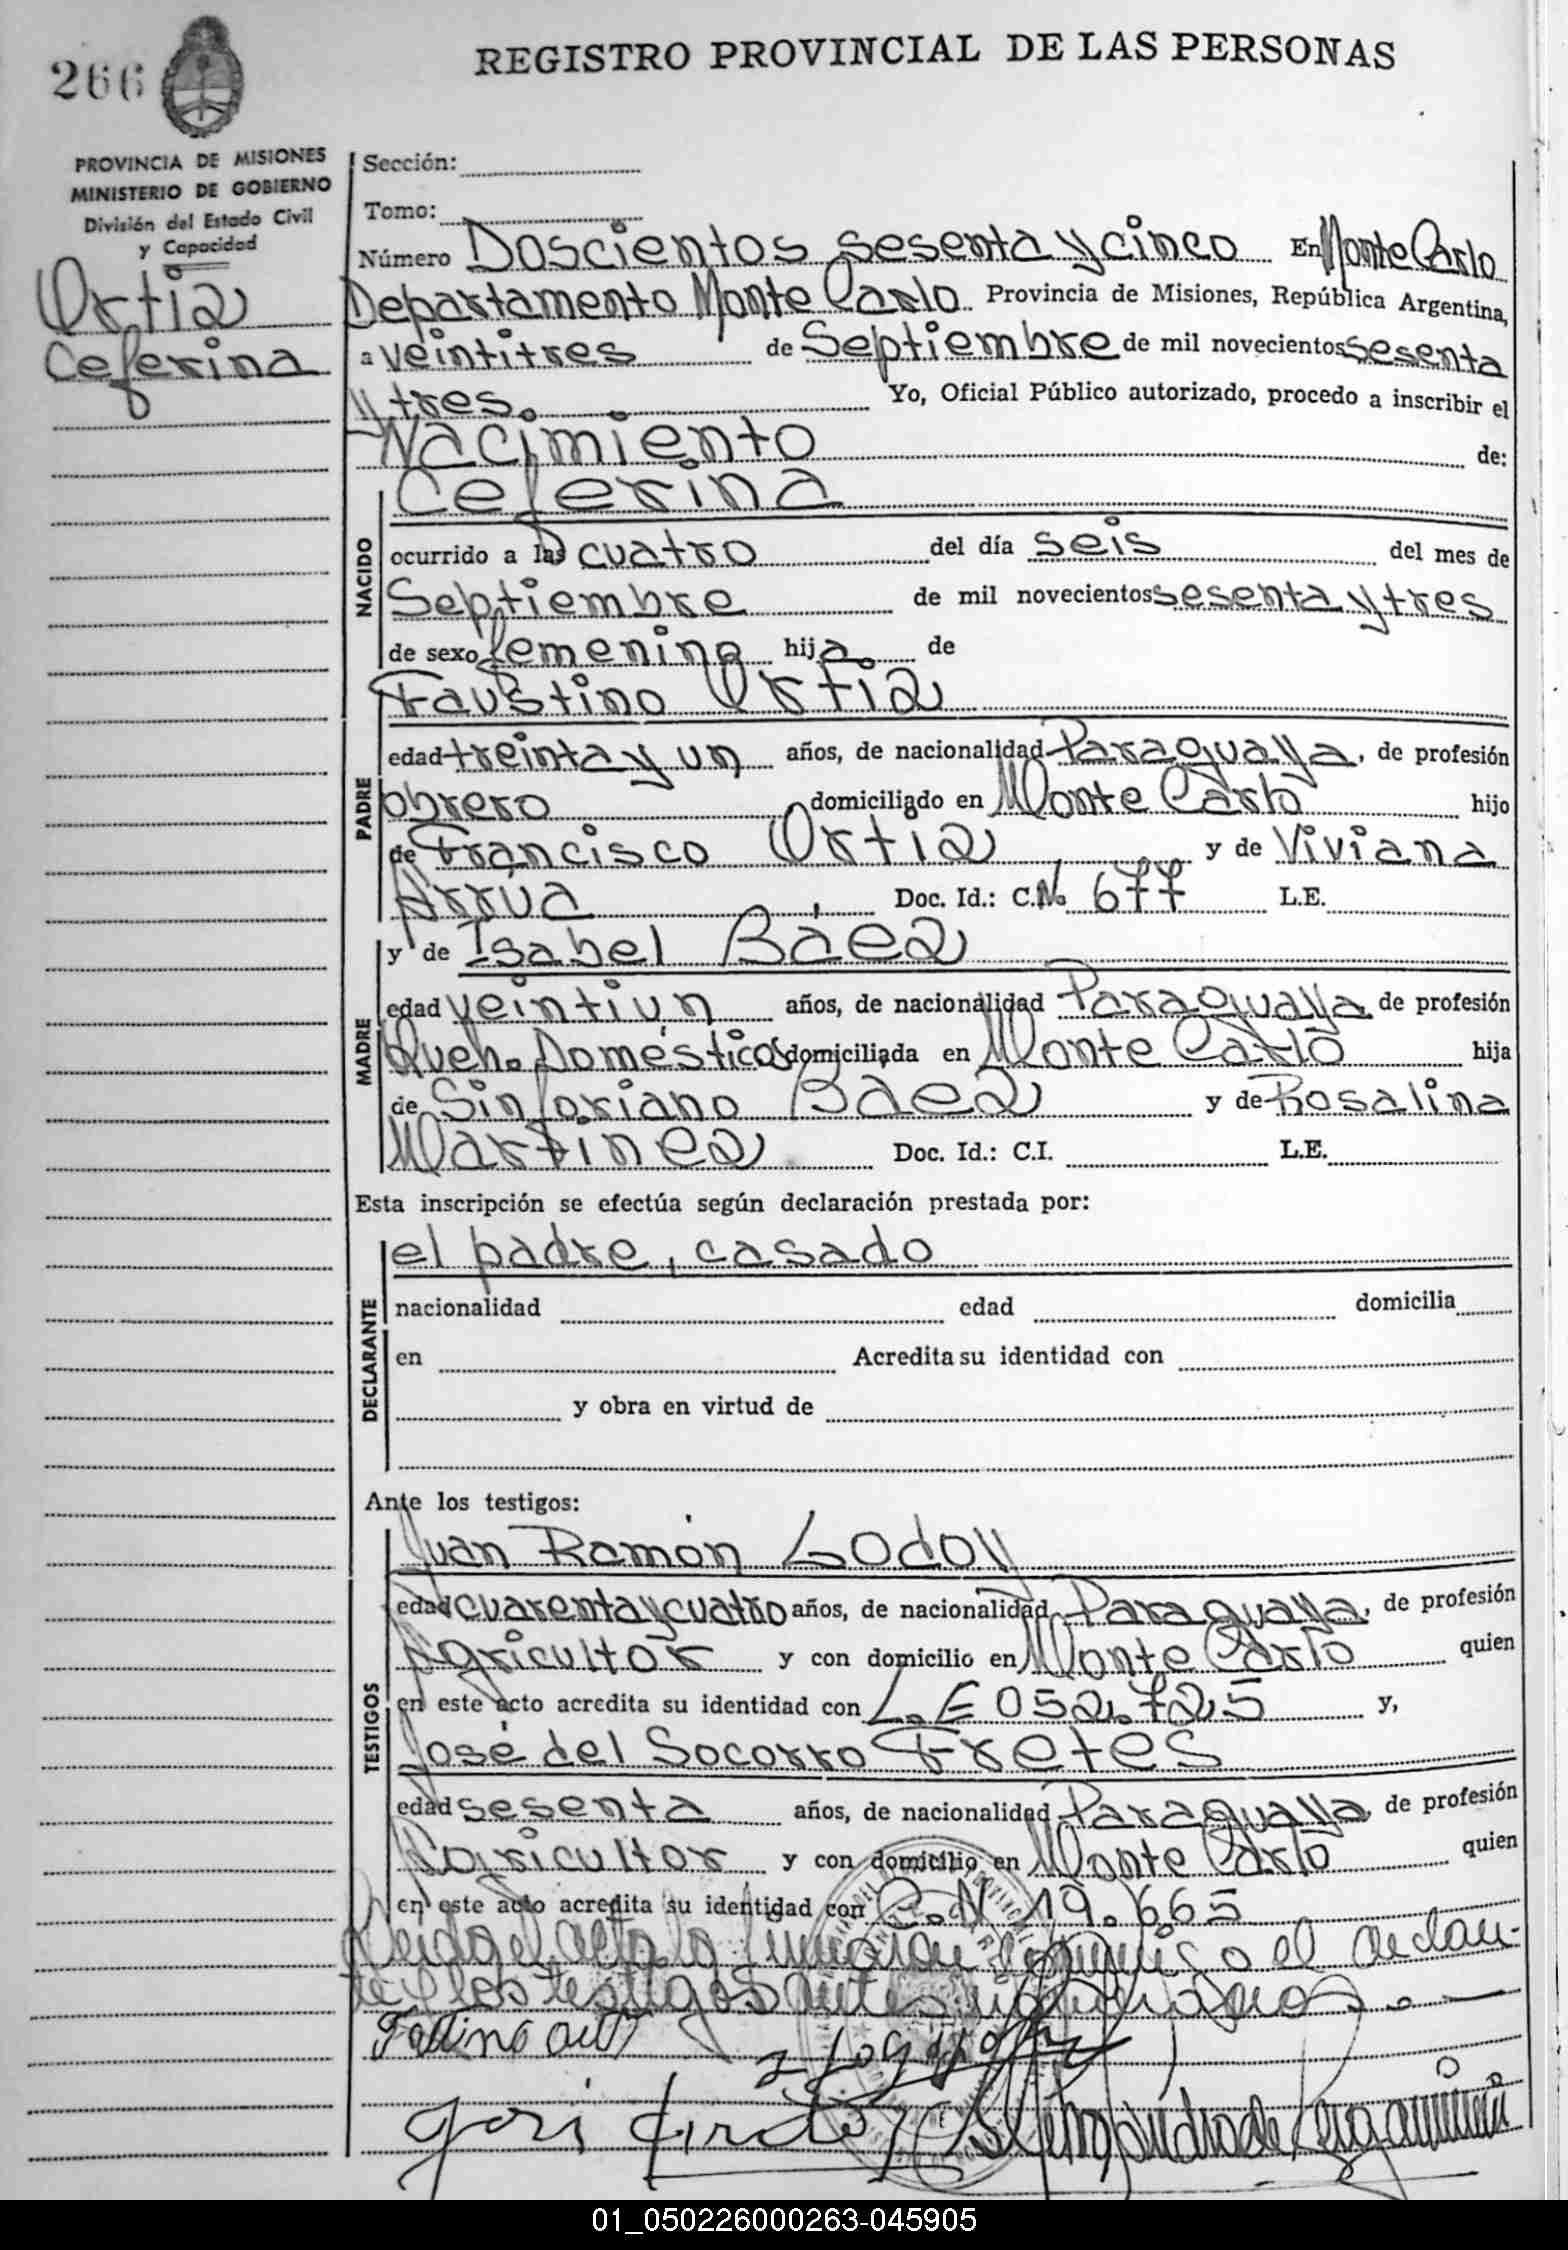 266
REGISTRO PROVINCIAL DE LAS PERSONAS
PROVINCIA DE MISIONES
MINISTERIO DE GOBIERNO
División del Estado Civil
y Capacidad
Ortiz
Ceferina
Sección:
Tomo:
Número Doscientos sesenta y cinco En Monte Carlo
Departamento Monte Carlo Provincia de Misiones, República Argentina,
a veintitres de Septiembre de mil novecientos sesenta
y tres. Yo, Oficial Público autorizado, procedo a inscribir el
Nacimiento de:
Ceferina
NACIDO
ocurrido a las cuatro del día seis del mes de
Septiembre de mil novecientos sesenta y tres
de sexo femenino hija de
Faustino Ortiz
PADRE
edad treinta y un años, de nacionalidad Paraguaya, de profesión
obrero domiciliado en Monte Carlo hijo
de Francisco Ortiz y de Viviana
Arrua Doc. Id.: C.No. 677 L.E.
y de Isabel Báez
MADRE
edad veintiún años, de nacionalidad Paraguaya de profesión
Queh. Domésticos domiciliada en Monte Carlo hija
de Sinforiano Báez y de Rosalina
Martinez Doc. Id.: C.I. L.E.
Esta inscripción se efectúa según declaración prestada por:
el padre, casado
DECLARANTE
nacionalidad edad domicilia
en Acredita su identidad con
y obra en virtud de
Ante los testigos:
Juan Ramón Godoy
TESTIGOS
edad cuarenta y cuatro años, de nacionalidad Paraguaya, de profesión
Agricultor y con domicilio en Monte Carlo quien
en este acto acredita su identidad con L.E 052.725 y,
José del Socorro Fretes
edad sesenta años, de nacionalidad Paraguaya de profesión
Agricultor y con domicilio en Monte Carlo quien
en este acto acredita su identidad con C.N 19.665
Leida el acta la firmaron conmigo el declaran-
te y los testigos antes
01_050226000263-045905